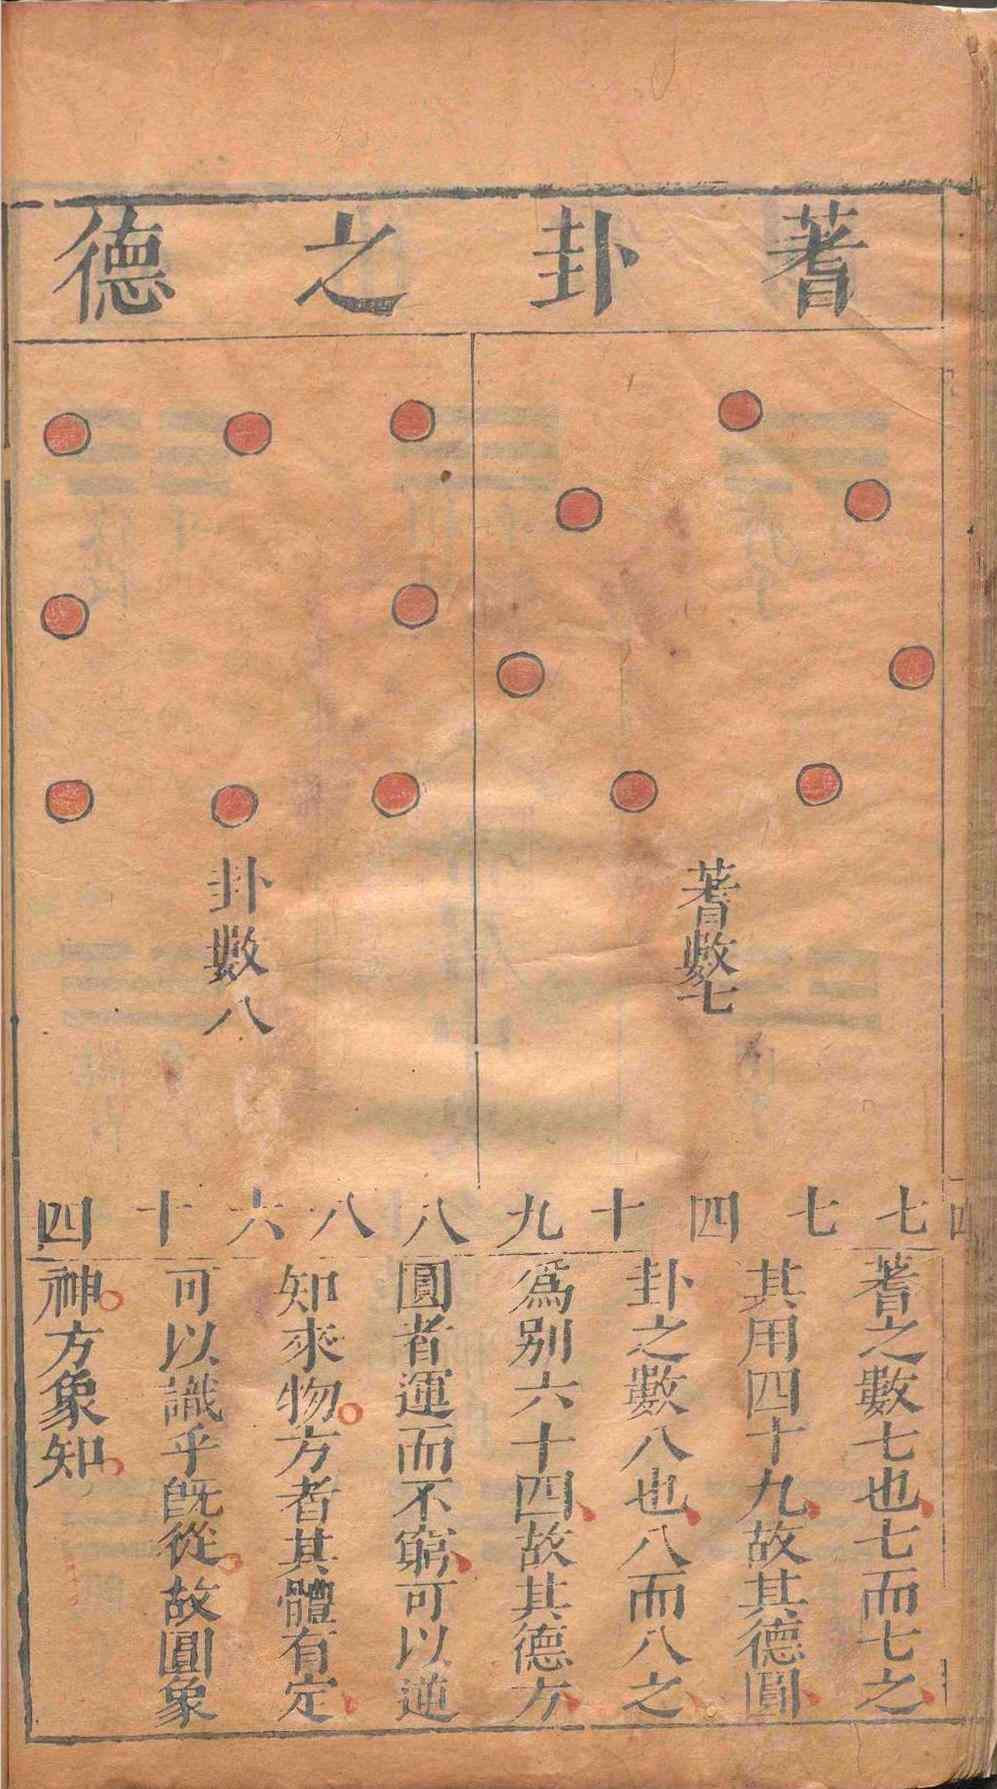 蓍卦之德
蓍數七
卦數八
七七四十九八八六十四
蓍之數七也七而七之
其用四十九故其德圓
卦之數八也八而八之
爲别六十四故其德方
圓者運而不窮可以逆
知來物方者其體有定
可以識乎旣從故圓象
神方象知